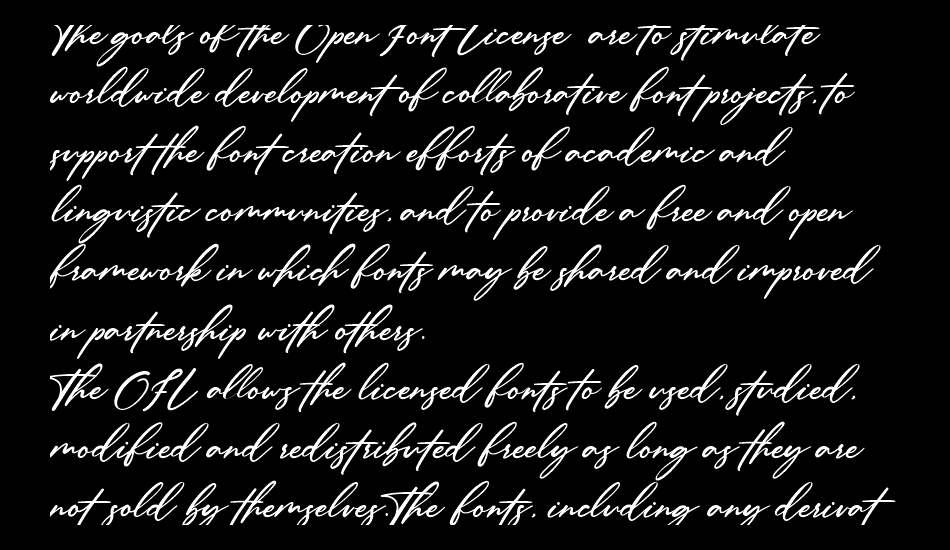 The goals of the Open Font License are to stimulate
worldwide development of collaborative font projects, to
support the font creation efforts of academic and
linguistic communities, and to provide a free and open
framework in which fonts may be shared and improved
in partnership with others.
The OFL allows the licensed fonts to be used, studied,
modified and redistributed freely as long as they are
not sold by themselves. The fonts, including any derivat